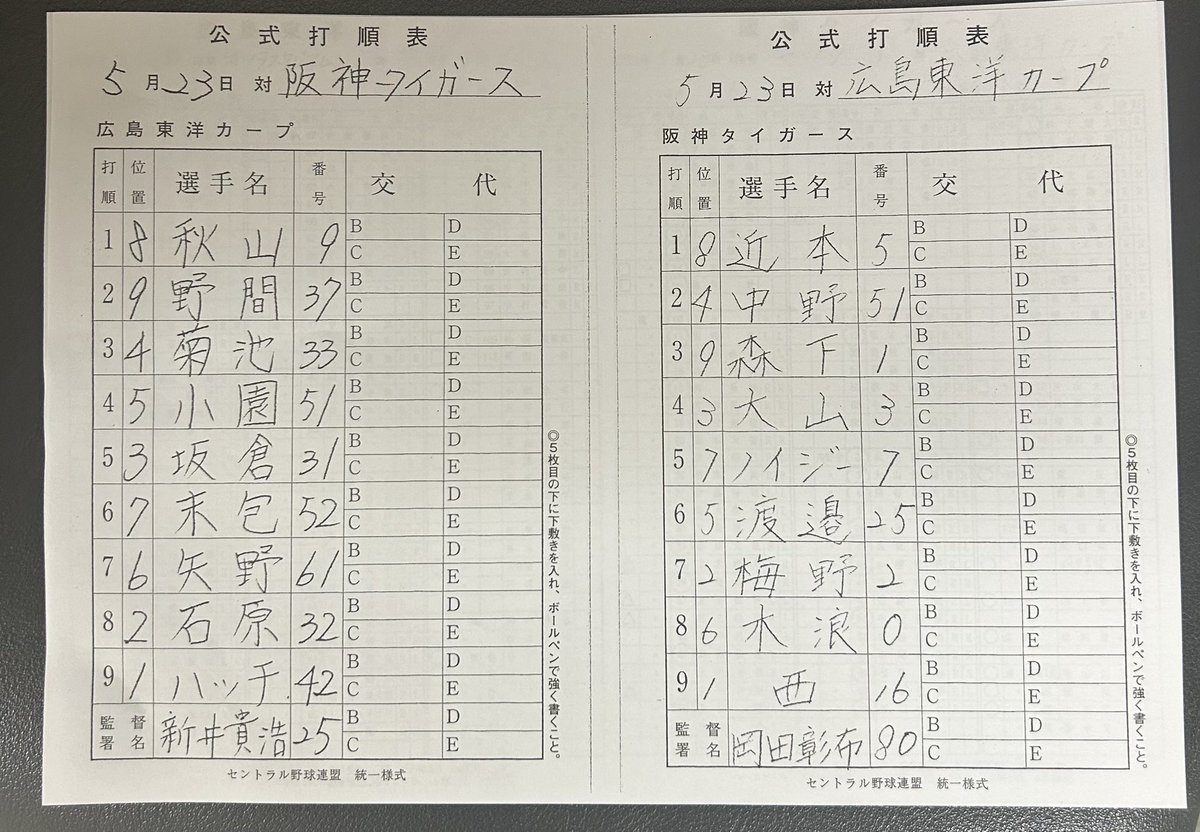 公式打順表
5月23日 対 阪神タイガース
広島東洋カープ
打順 位置 選手名 番号 交代
1 8 秋山 9 B D C E
2 9 野間 37 B D C E
3 4 菊池 33 B D C E
4 5 小園 51 B D C E
5 3 坂倉 31 B D C E
6 7 末包 52 B D C E
7 6 矢野 61 B D C E
8 2 石原 32 B D C E
9 1 ハッチ 42 B D C E
監督署名 新井貴浩 25 B D C E
セントラル野球連盟 統一様式
◎5枚目の下に下敷きを入れ、ボールペンで強く書くこと。
公式打順表
5月23日 対 広島東洋カープ
阪神タイガース
打順 位置 選手名 番号 交代
1 8 近本 5 B D C E
2 4 中野 51 B D C E
3 9 森下 1 B D C E
4 3 大山 3 B D C E
5 7 ノイジー 7 B D C E
6 5 渡邉 25 B D C E
7 2 梅野 2 B D C E
8 6 木浪 0 B D C E
9 1 西 16 B D C E
監督署名 岡田彰布 80 B D C E
セントラル野球連盟 統一様式
◎5枚目の下に下敷きを入れ、ボールペンで強く書くこと。